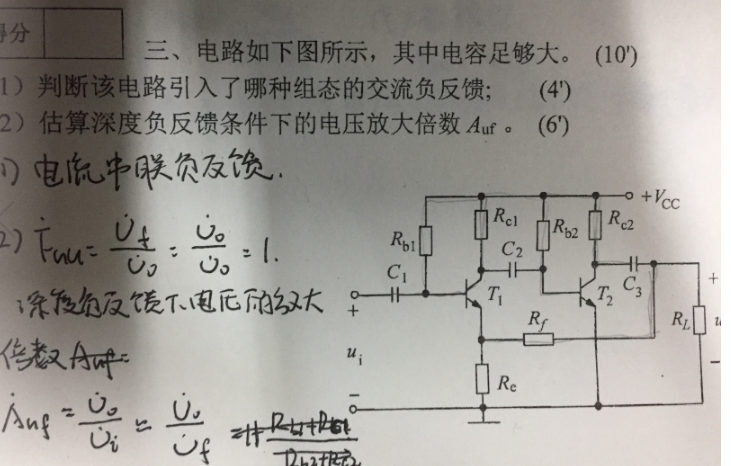 得分
三、电路如下图所示，其中电容足够大。 (10')
1）判断该电路引入了哪种组态的交流负反馈; (4')
2）估算深度负反馈条件下的电压放大倍数 Auf 。 (6')
1) 电流串联负反馈.
2) Ḟuu = U̇f/U̇o = U̇o/U̇o = 1.
深度负反馈下,电压放大
倍数 Auf=
Ȧuf = U̇o/U̇i = U̇o/U̇f
+VCC
Rc1
Rb2
Rc2
Rb1
C2
C1
T1
T2
C3
Rf
RL
+
+
ui
u
Re
−
−